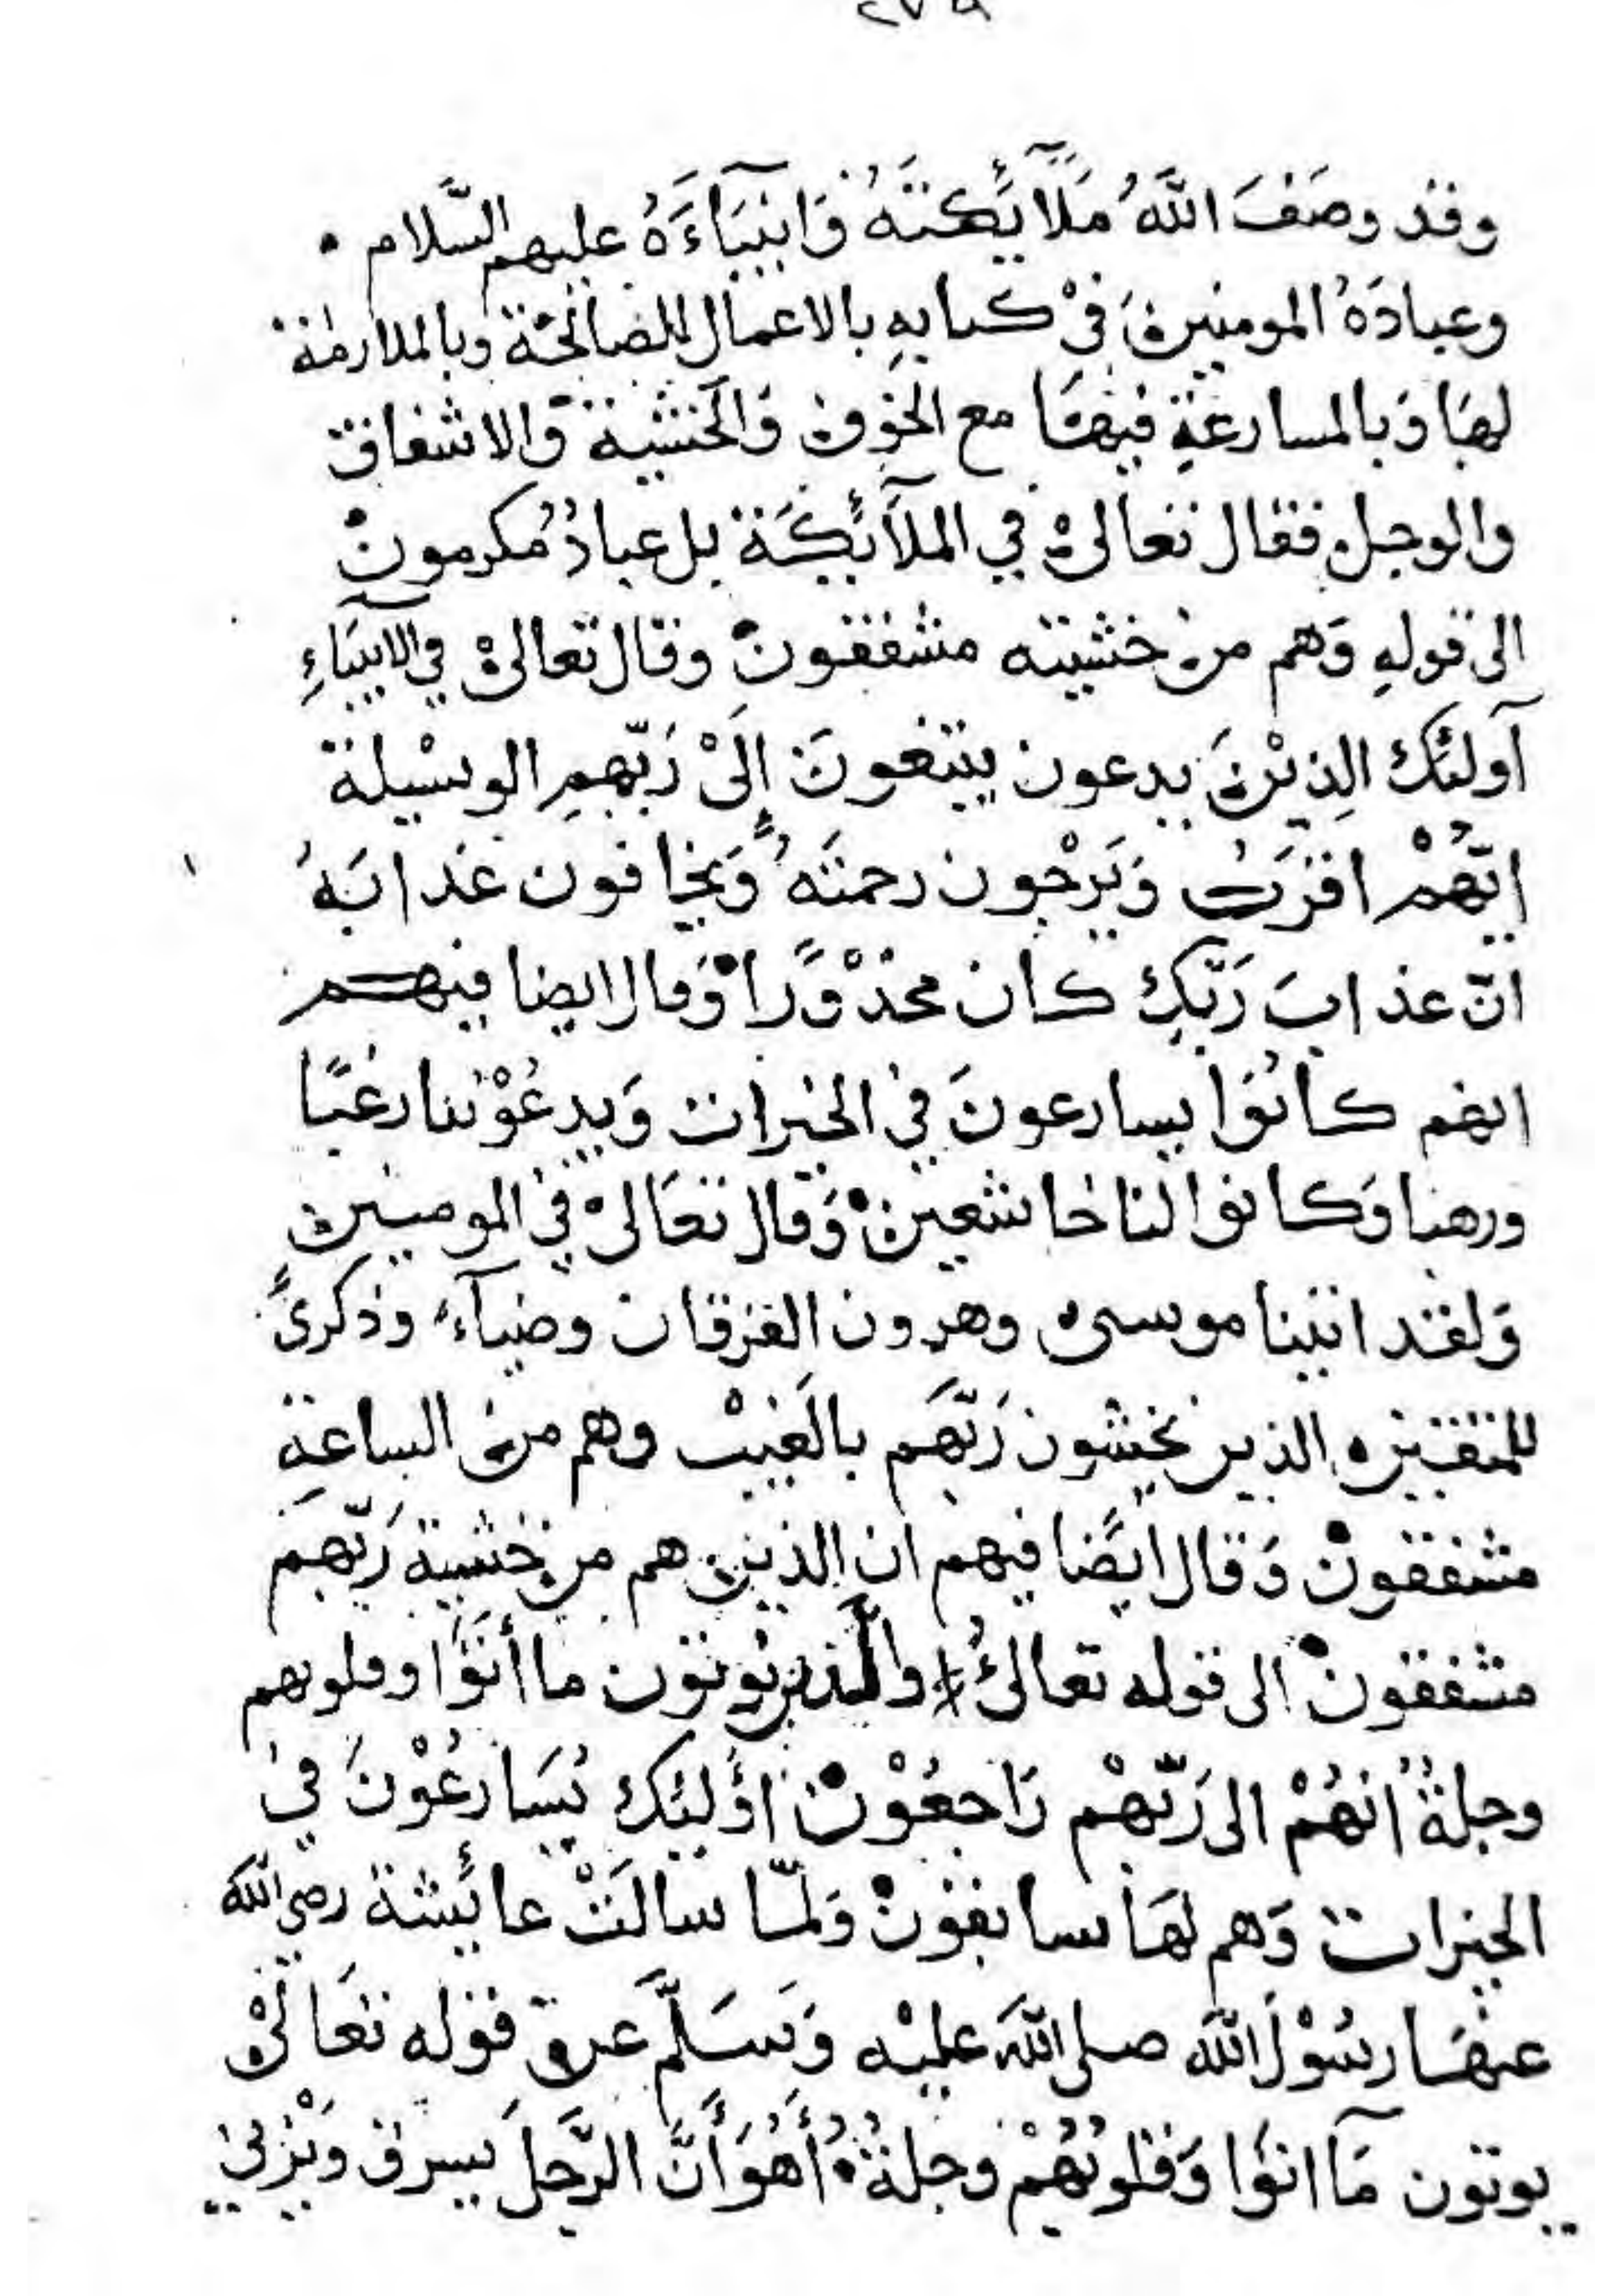 وقد وصَفَ اللَّهُ مَلَآئِكتَهُ وَانبيَآءَهُ عليهم السَّلام ۰
وعبادَهُ المومنينَ فىْ كتابهِ بالاعمال الصالحَة وبالملازمة
لهَا وَبالمسارعَةِ فيهَا مع الخوف وَالخشية وَالاشفاق
والوجل فقال تعالىْ في الملآئكَة بل عبادٌ مُكرمونْ
الى قولهِ وَهم من خشيته مشفقونْ وقال تعالىْ في الانبيَاءِ
آولئك الذِيْنَ يدعون يبتغونَ إِلىْ رَبّهِم الوسْيلة
ايّهُمْ اقرَبُ وَيَرْجون رحمتَهُ وَيخافون عذابَهُ
انّ عذابَ رَبّكِ كان محذْوًرًا وَقال ايضا فيهم
انهم كانُوَا يسارعونَ في الخيرات وَيدعُوْننا رغبًا
ورهبا وَكانوا لنا خاشعينْ وَقال تعَالىْ في المومنين
وَلقد اتينا موسى وهرون الفرقان وضيآءً وذكرىً
للمتقين الذين يخشون رَبّهَم بالغَيبْ وهم من الساعةِ
مشفقونْ وَقال ايضًا فيهم ان الذين هم من خشية رَبّهم
مشفقونْ الى قوله تعالىُ والَّذين يُوتون ما أتَوَا وقلوبهم
وجلةُ انهُمْ الى رَبّهْم رَاجعُوْنْ اوَلئِك يُسَارعُوْنَ في
الخيرات وَهم لهَا سابقونْ وَلمّا سالَتْ عائِشة رضي الله
عنهَا رسُوْلَ اللهَ صلى اللهَ عليْه وَسَلّمَ عن قوله تعَالىْ
يوتون مَآ اتوَا وَقلوبُهُمْ وجلةٌ أَهُوَ أَنَّ الرَّجلَ يسرق وَيْزني